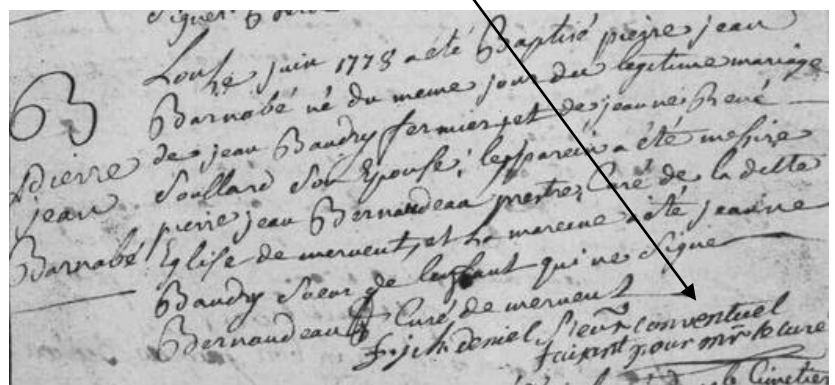 signer
B Lonze juin 1778 a été Baptisé pierre jean
Barnabé né du meme jour du legitime mariage
pierre de jean Baudry fermier, et de jeanne René
jean Soullard Son Epouse, le parein a été messire
Barnabé pierre jean Bernaudeau prestre, Curé de la ditte
Eglise de mervent, et la mareine a été jeanne
Baudry Soeur de lenfant qui ne Signe
Bernaudeau Curé de mervent
f. j. ch. deniel conventuel
faisant pour mr le cure
le Cimetier